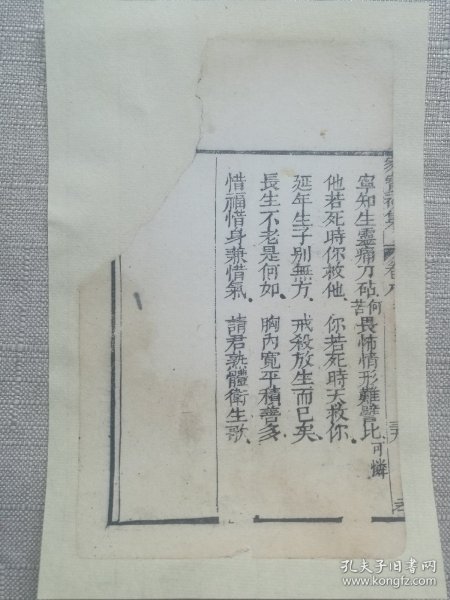 寧知生靈痛刀砧、何苦畏怖情形難譬比、可憐
他若死時你救他、你若死時天救你、
延年生子別無方、戒殺放生而已矣、
長生不老是何如、胸內寬平積善多、
惜福惜身兼惜氣、請君熟體衛生歌、
孔夫子旧书网
www.kongfz.com